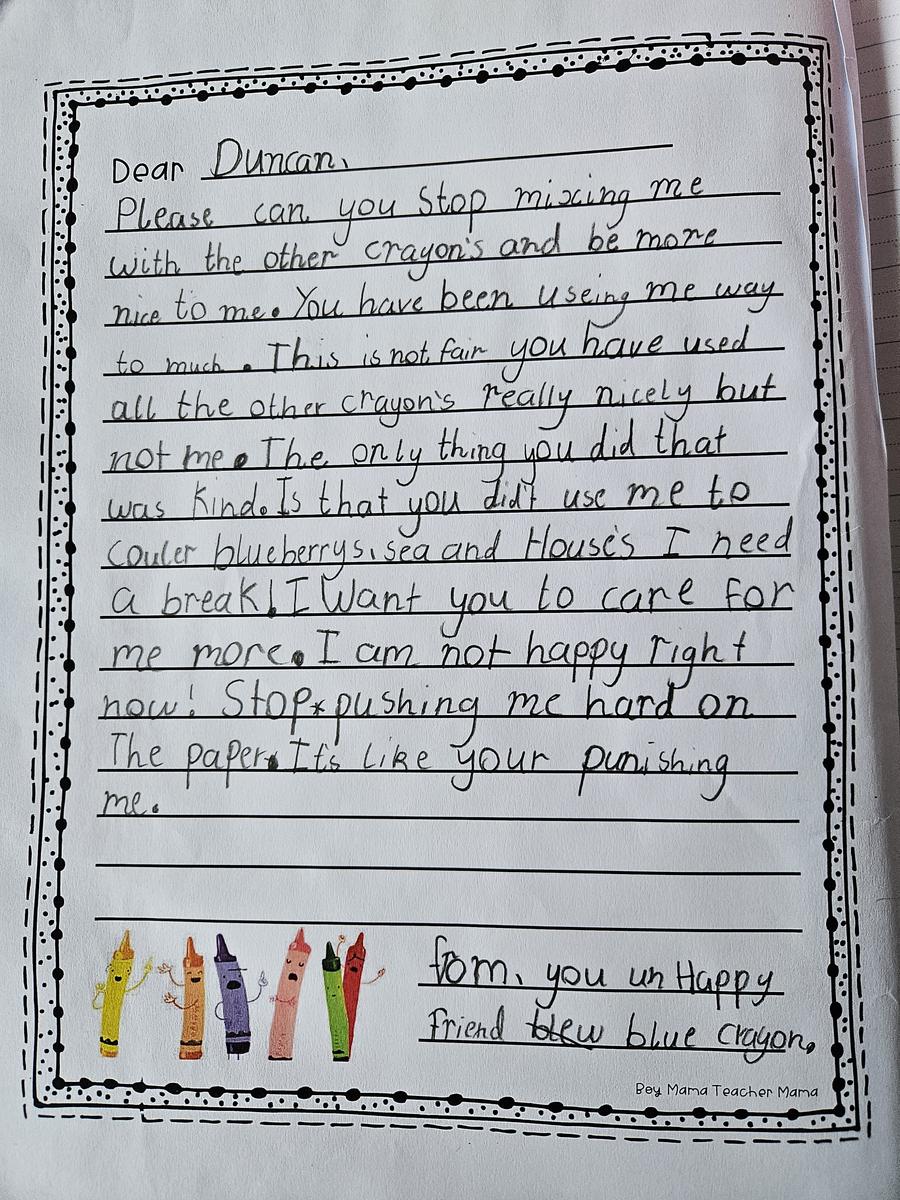 Dear Duncan,
Please can you stop mixing me
with the other crayon's and be more
nice to me. You have been useing me way
to much. This is not fair you have used
all the other crayon's really nicely but
not me. The only thing you did that
was kind. Is that you did't use me to
couler blueberrys, sea and House's I need
a break! I Want you to care for
me more. I am not happy right
now! Stop pushing me hard on
The paper. It's like your punishing
me.
fom, you un Happy
friend blew blue crayon,
Bey Mama Teacher Mama